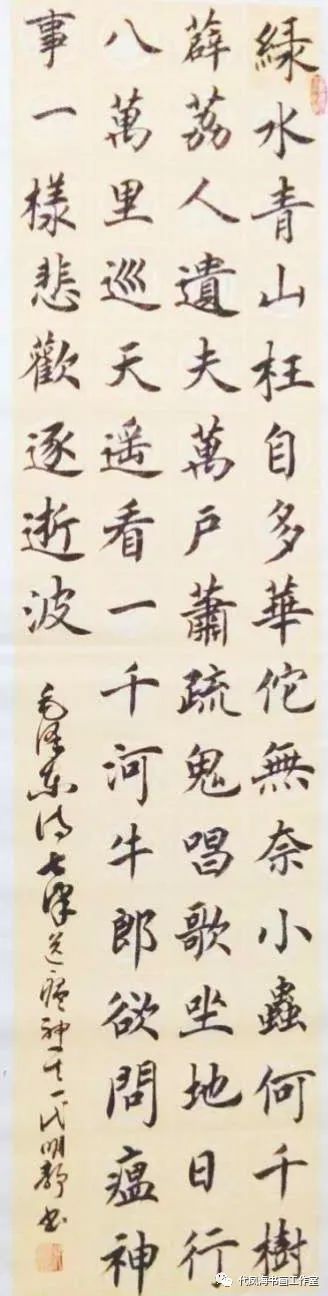 緑水青山枉自多華佗無奈小蟲何千樹
薜荔人遺夫萬戶蕭疏鬼唱歌坐地日行
八萬里巡天遥看一千河牛郎欲問瘟神
事一樣悲歡逐逝波
毛泽东诗七律送瘟神其一代明静书
代凤海书画工作室